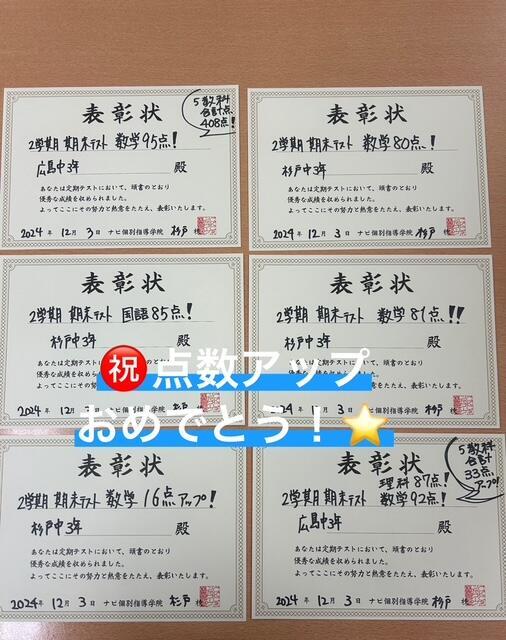 表彰状
5教科
合計点
408点!
2学期 期末テスト 数学95点!
広島中3年 殿
あなたは定期テストにおいて、頭書のとおり
優秀な成績を収められました。
よってここにその努力と熱意をたたえ、表彰いたします。
2024年 12月 3日 ナビ個別指導学院 杉戸校
表彰状
2学期 期末テスト 数学80点!
杉戸中3年 殿
あなたは定期テストにおいて、頭書のとおり
優秀な成績を収められました。
よってここにその努力と熱意をたたえ、表彰いたします。
2024年 12月 3日 ナビ個別指導学院 杉戸校
表彰状
2学期 期末テスト 国語85点!
杉戸中3年 殿
2024年 12月 3 杉戸校
表彰状
2学期 期末テスト 数学81点!!
杉戸中3年 殿
あなたは定期テストにおいて、頭書のとおり
24年 12月 3日 ナビ個別指導学院 杉戸校
㊗️点数アップ
おめでとう!⭐
表彰状
2学期 期末テスト 数学16点アップ!
杉戸中3年 殿
あなたは定期テストにおいて、頭書のとおり
優秀な成績を収められました。
よってここにその努力と熱意をたたえ、表彰いたします。
2024年 12月 3日 ナビ個別指導学院 杉戸校
表彰状
5教科
合計
33点
アップ!
理科87点!
2学期 期末テスト 数学92点!
広島中3年 殿
あなたは定期テストにおいて、頭書のとおり
優秀な成績を収められました。
よってここにその努力と熱意をたたえ、表彰いたします。
2024年 12月 3日 ナビ個別指導学院 杉戸校